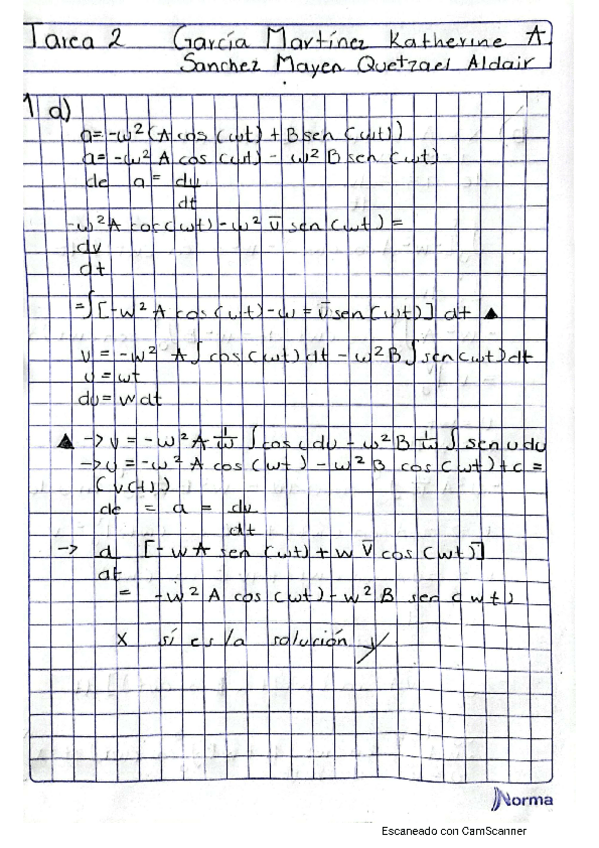 Tarea 2 García Martínez Katherine A.
Sanchez Mayen Quetzael Aldair
1 a)
a=-ω²(A cos (ωt) + B sen (ωt))
a=-ω² A cos (ωt) - ω² B sen (ωt)
de a = dv
dt
-ω²A cos(ωt) - ω² v̄ sen (ωt) =
dv
dt
=∫[-ω² A cos (ωt) - ω = v̄ sen (ωt)] dt ▲
v = -ω² A ∫ cos (ωt) dt - ω² B ∫ sen (ωt) dt
u = ωt
du = w dt
▲ -> v = -ω² A 1/ω ∫ cos u du - ω² B 1/ω ∫ sen u du
-> v = -ω² A cos (ωt) - ω² B cos (ωt) + c =
(v(t))
de = a = dv
dt
-> d [-w A sen (ωt) + w v̄ cos (wt)]
dt
= -w² A cos (wt) - w² B sen (wt)
x sí es la solución
Norma
Escaneado con CamScanner